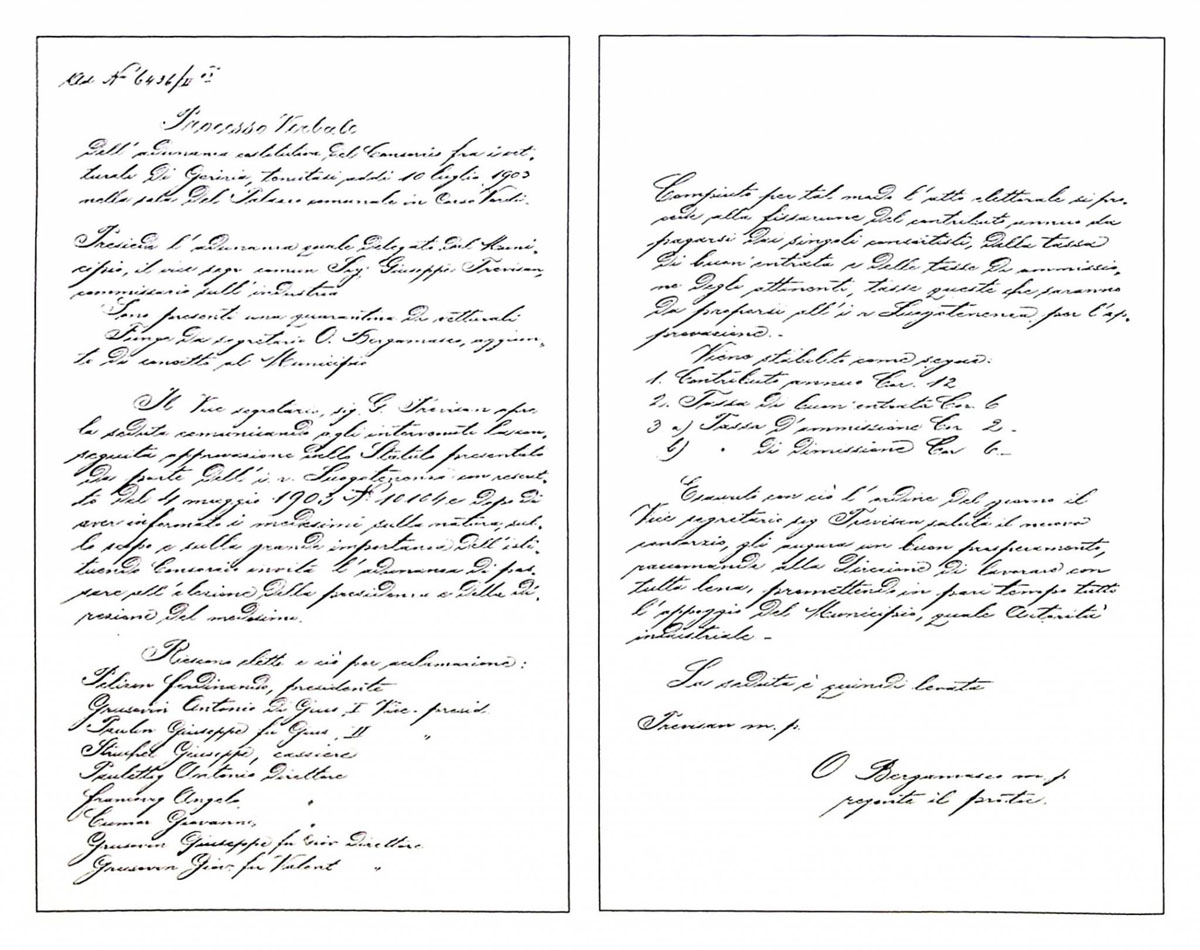 Ad Nº 6436/II
Processo Verbale
Dell'adunanza costitutiva del Consorzio fra i vet-
turali di Gorizia, tenutasi addì 10 luglio 1903
nella sala del Palazzo comunale in Corso Verdi.
Presiede l'adunanza quale delegato del Muni-
cipio, il vice segr comun Sig. Giuseppe Trevisan,
commissario sull'industria
Sono presenti una quarantina di vetturali
Funge da segretario O. Bergamasco, aggiun-
to di concetto al Municipio
Il Vice segretario, sig. G. Trevisan apre
la seduta comunicando agli intervenuti la con-
seguita approvazione dello Statuto presentato
da parte dell'i. r. Luogotenenza con rescrit-
to del 4 maggio 1903 Nº 10104 e dopo di
aver informato i medesimi sulla natura, sul-
lo scopo e sulla grande importanza dell'isti-
tuendo Consorzio invita l'adunanza di pas-
sare all'elezione della presidenza e della di-
rezione del medesimo.
Riescono elette e ciò per acclamazione:
Pelizon Ferdinando, presidente
Grusovin Antonio di Gius. I Vice-presid.
Paulin Giuseppe fu Gius. II "
Giuseppe, cassiere
Paulettig Antonio Direttore
Francovig Angelo "
Cumar Giovanni, "
Grusovin Giuseppe fu Giov Direttore
Grusovin Giov. fu Valent "
Compiuto per tal modo l'atto elettorale si pro-
cede alla fissazione del contributo annuo da
pagarsi dai singoli consortisti, della tassa
di buon'entrata e delle tasse di ammissio-
ne degli attinenti, tasse queste che saranno
da proporsi all'i r Luogotenenza per l'ap-
provazione.-
Viene stabilito come segue:
1. Contributo annuo Cor. 12
2. Tassa di buon'entrata Cor. 6
3 a) Tassa d'ammissione Cor 2-
b) " di dimissione Cor 6-
Esaurito con ciò l'ordine del giorno il
Vice segretario sig Trevisan saluta il nuovo
consorzio, gli augura un buon prosperamento,
raccomanda alla Direzione di lavorare con
tutta lena, promettendo in pari tempo tutto
l'appoggio del Municipio, quale Autorità
industriale-
La seduta è quindi levata
Trevisan m. p.
O Bergamasco m. p.
il